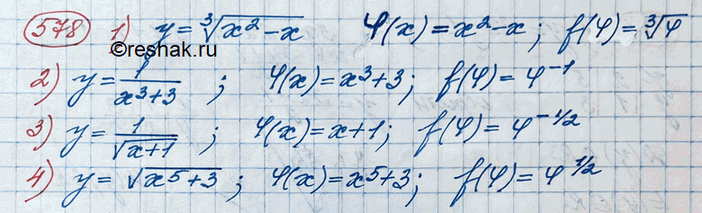 578 1) y = ∛(x² − x) φ(x) = x² − x ; f(φ) = ∛φ
©reshak.ru
2) y = 1/(x³+3) ; φ(x) = x³+3 ; f(φ) = φ⁻¹
3) y = 1/√(x+1) ; φ(x) = x+1 ; f(φ) = φ^(−1/2)
4) y = √(x⁵+3) ; φ(x) = x⁵+3 ; f(φ) = φ^(1/2)